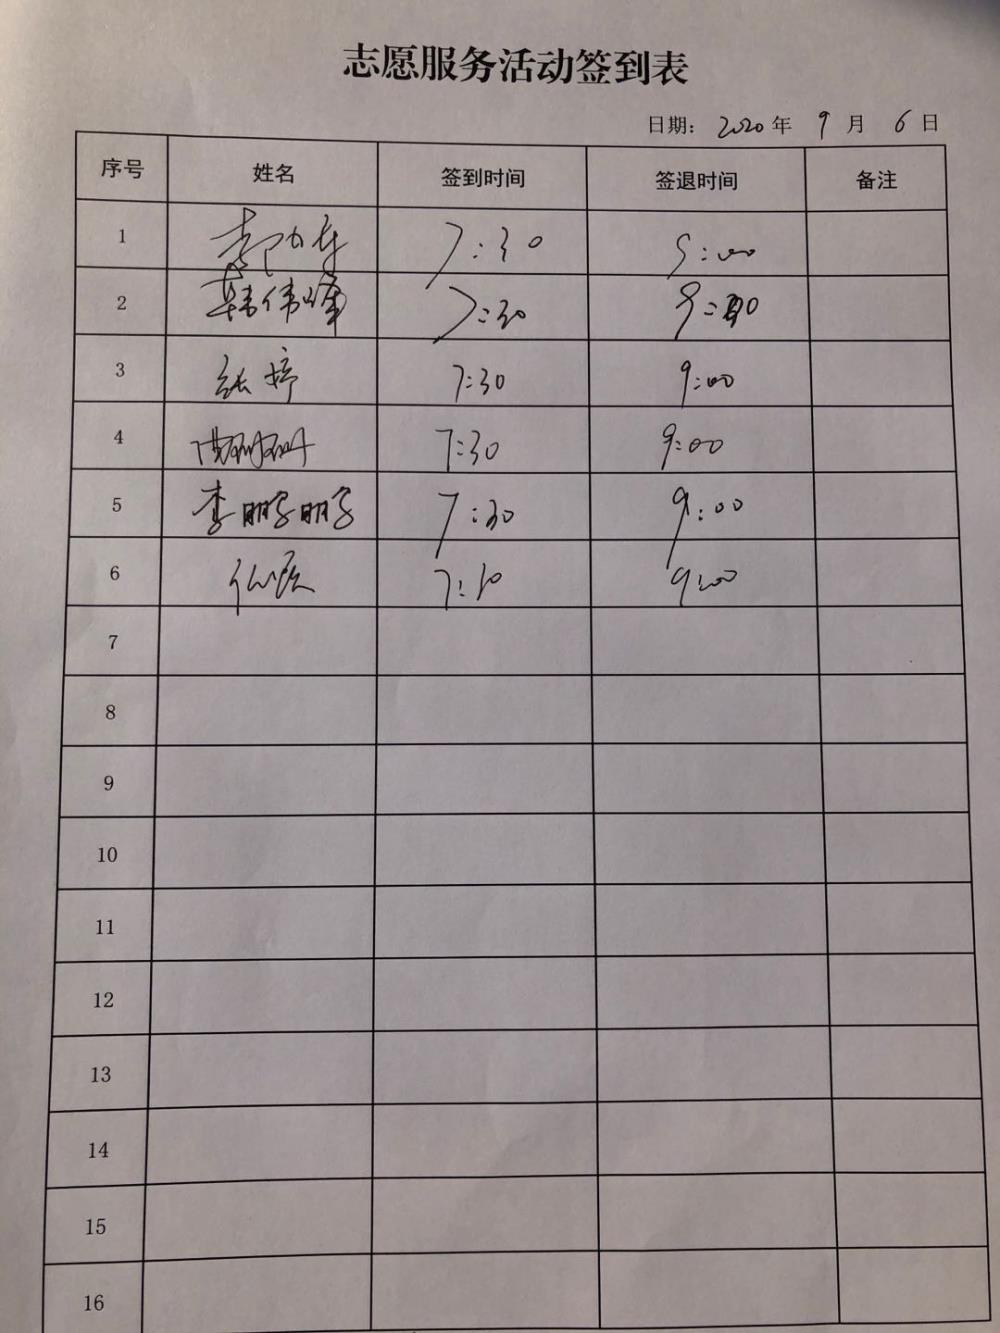 志愿服务活动签到表
日期： 2020 年 9 月 6 日
序号 姓名 签到时间 签退时间 备注
1 7:30 9:00
2 韩伟峰 7:30 9:00
3 张婷 7:30 9:00
4 7:30 9:00
5 李鹏鹏 7:30 9:00
6 9:00
7
8
9
10
11
12
13
14
15
16